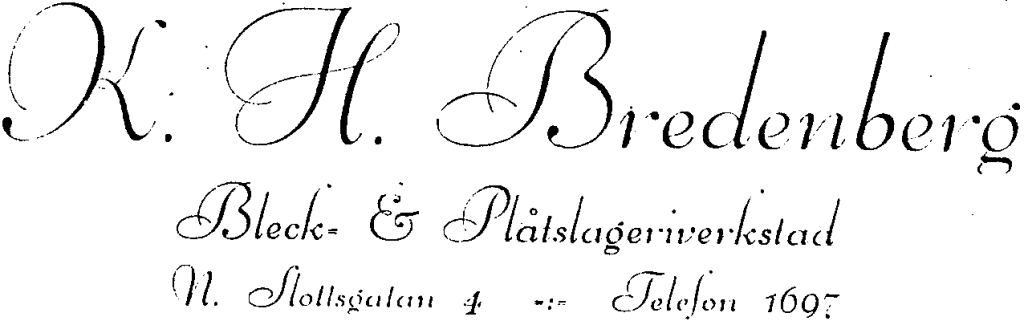 K. H. Bredenberg
Bleck- & Plåtslageriverkstad
N. Slottsgatan 4 -:- Telefon 1697